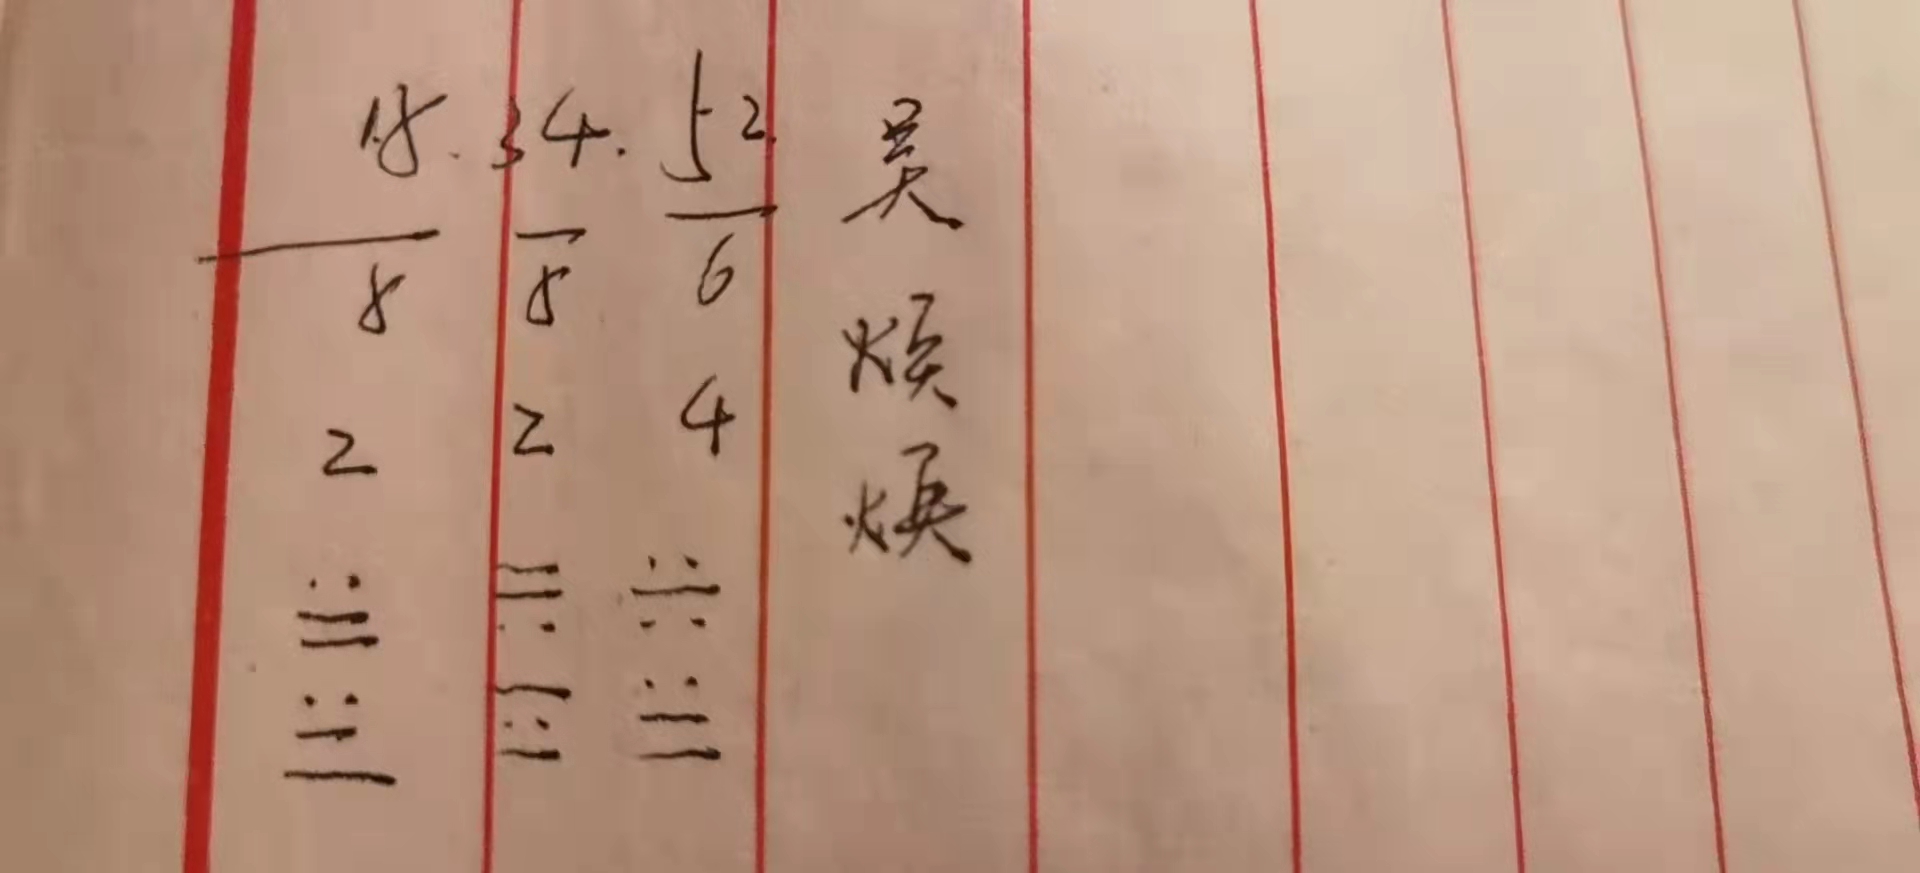 18.34.52
8 8 6
2 2 4
吴
焕
焕